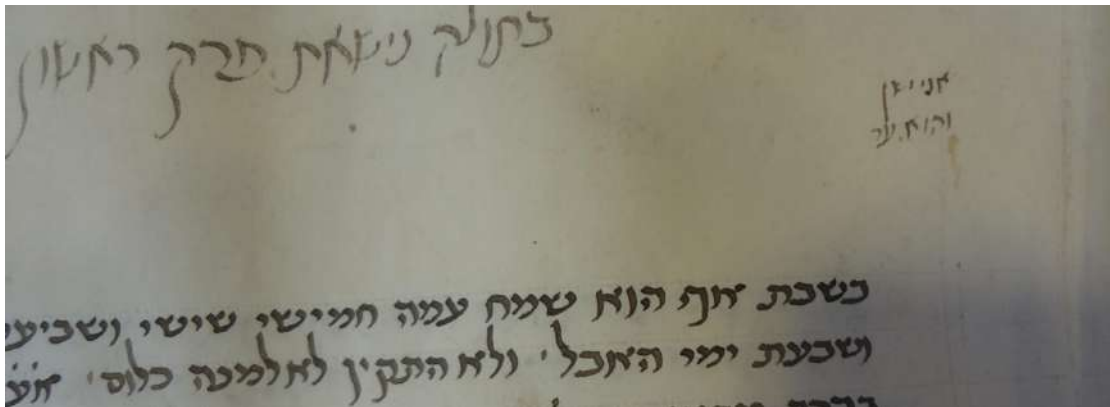 בתולה נישאת פרק ראשון
אני ישן
והוא ער
בשבת אף הוא שמח עמה חמישי שישי ושביעי
ושבעת ימי האבל' ולא התקין לאלמנה כלום'